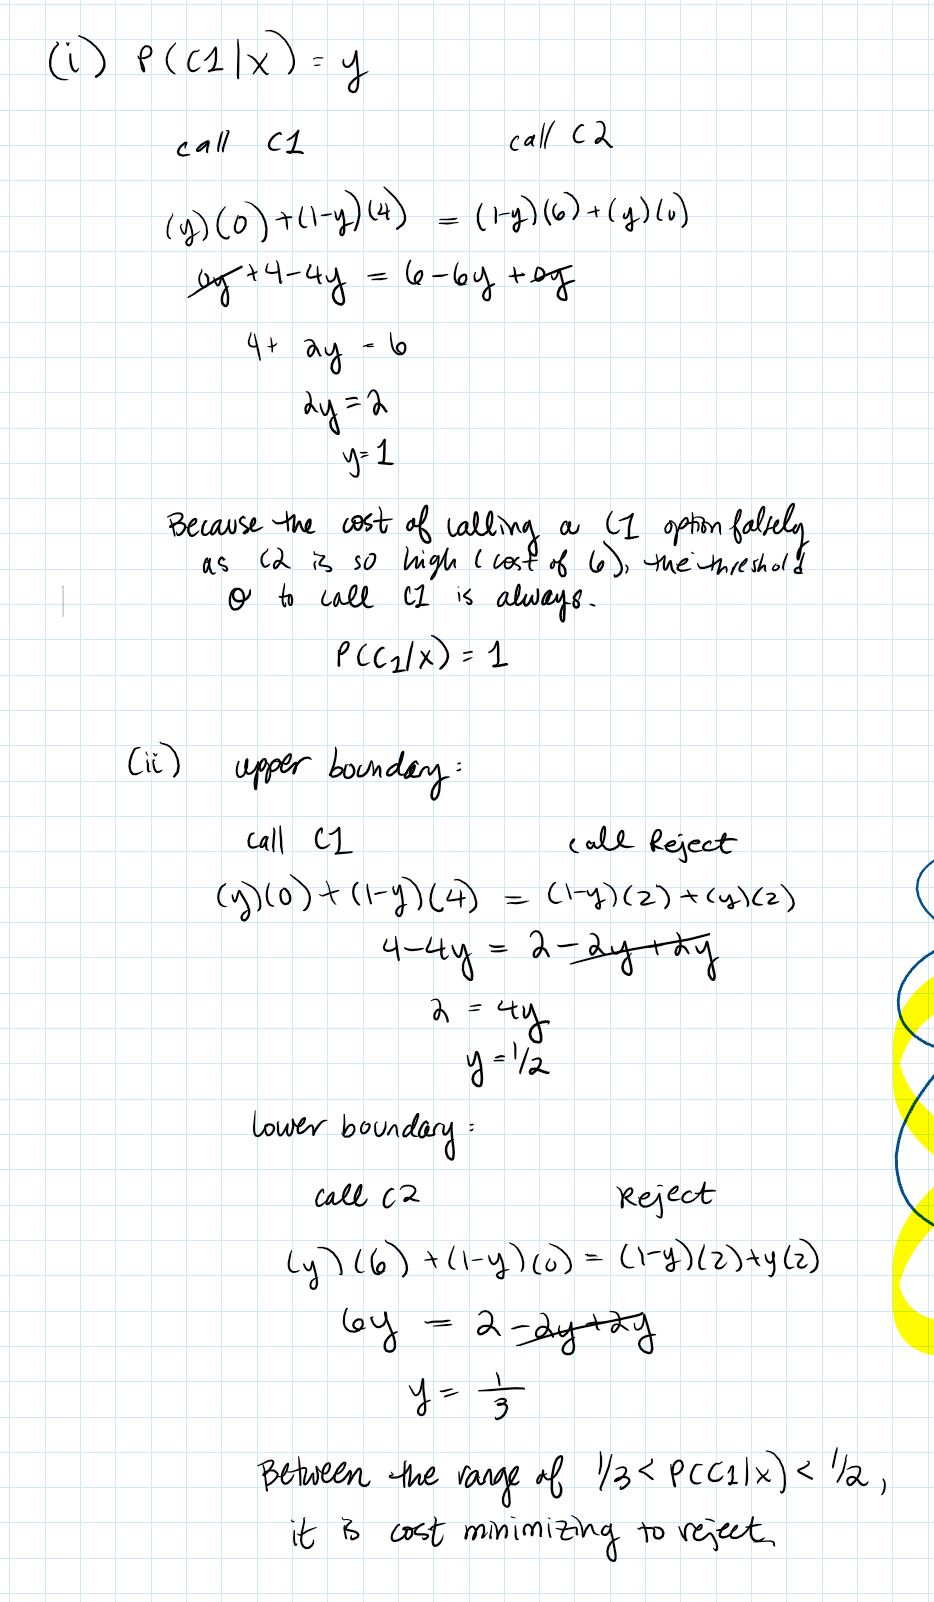 (i) P(C1|x) = y
call C1 call C2
(y)(0)+(1-y)(4) = (1-y)(6)+(y)(0)
0y+4-4y = 6-6y+0y
4+ 2y = 6
2y=2
y=1
Because the cost of calling a C1 option falsely
as C2 is so high (cost of 6), the threshold
θ to call C1 is always.
P(C1|x) = 1
(ii) upper boundary:
call C1 call Reject
(y)(0)+(1-y)(4) = (1-y)(2)+(y)(2)
4-4y = 2-2y+2y
2 = 4y
y = 1/2
lower boundary:
call C2 Reject
(y)(6)+(1-y)(0) = (1-y)(2)+y(2)
6y = 2-2y+2y
y = 1/3
Between the range of 1/3 < P(C1|x) < 1/2,
it is cost minimizing to reject.